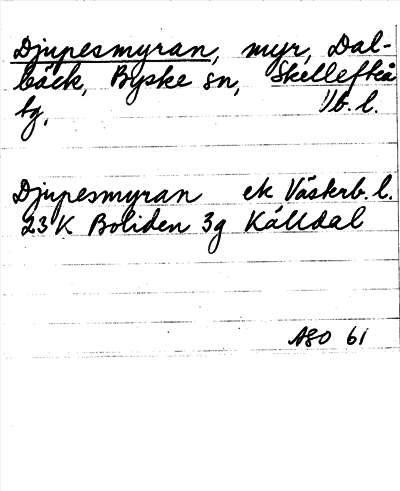 Djupesmyran, myr, Dal-
bäck, Byske sn, Skellefteå
tg, Vb. l.
Djupesmyran ek Västerb. l.
23 K Boliden 3g Källdal
ASO 61